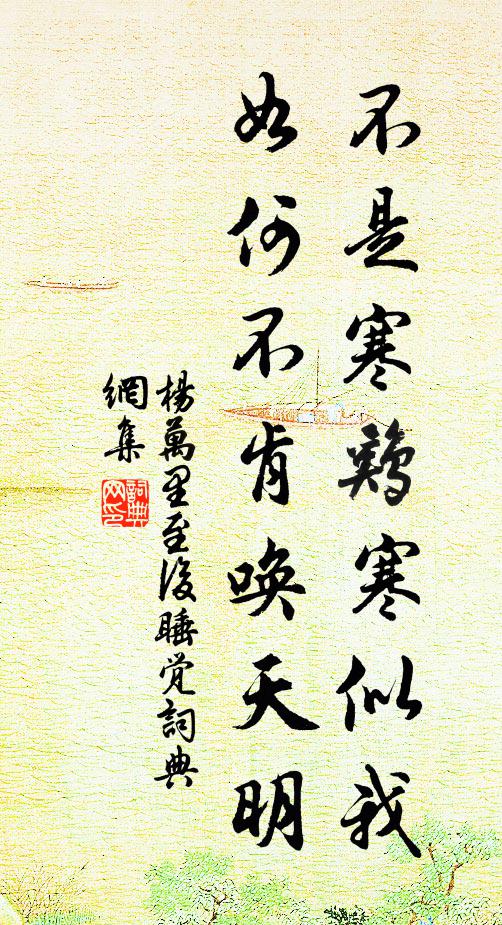 不是寒鷄寒似我
如何不肯唤天明
楊萬里至後睡觉詞典
網集
詞典网印